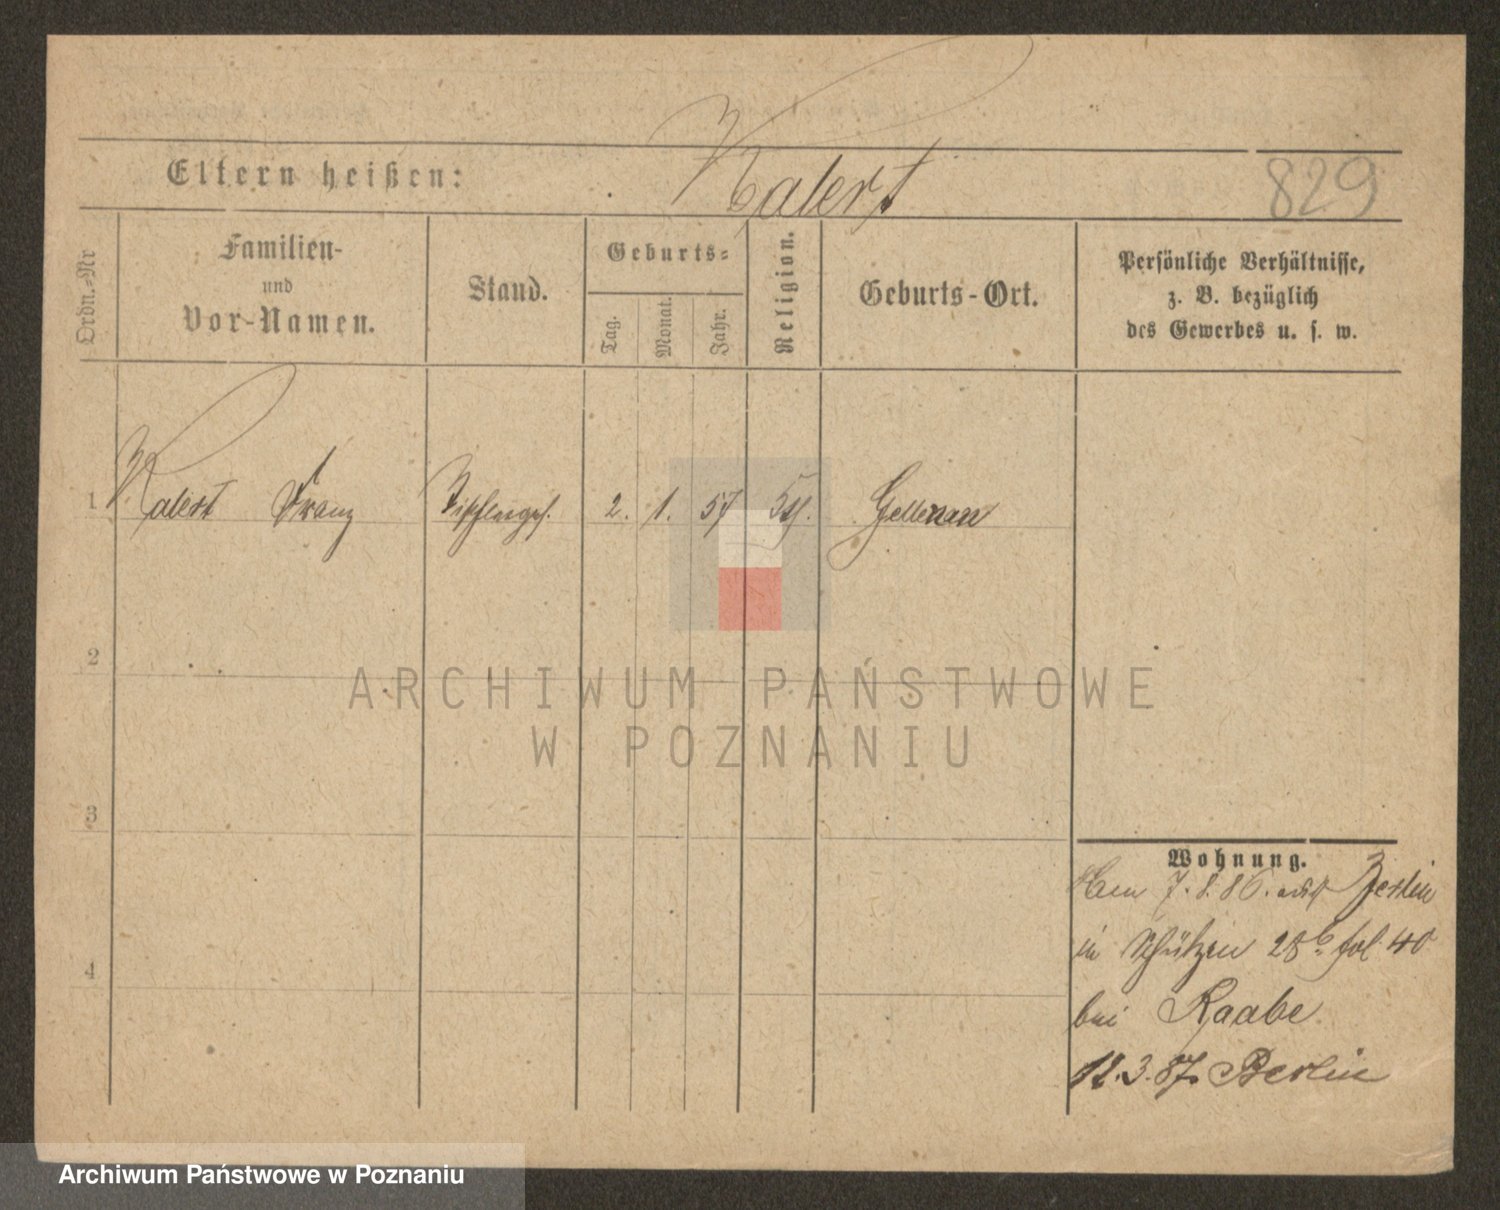 Eltern heißen: Kalert 829
Ordn.-Nr
Familien-
und
Vor-Namen.
Stand.
Geburts-
Tag.
Monat.
Jahr.
Religion.
Geburts-Ort.
Persönliche Verhältnisse,
z. B. bezüglich
des Gewerbes u. s. w.
1 Kalert Franz Tischlerges. 2. 1. 57 Gellenau
2
3
4
ARCHIWUM PAŃSTWOWE
W POZNANIU
Wohnung.
7. 8. 86. aus Berlin
in Schützen 28b fol 40
bei Raabe
12.3.87. Berlin
Archiwum Państwowe w Poznaniu